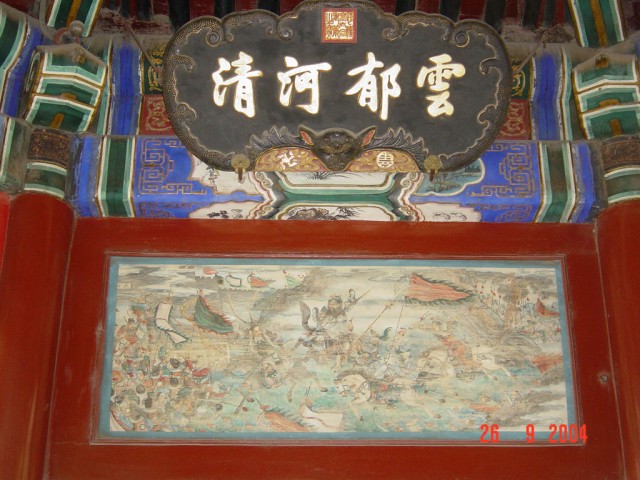 雲郁河清
26 9 2004